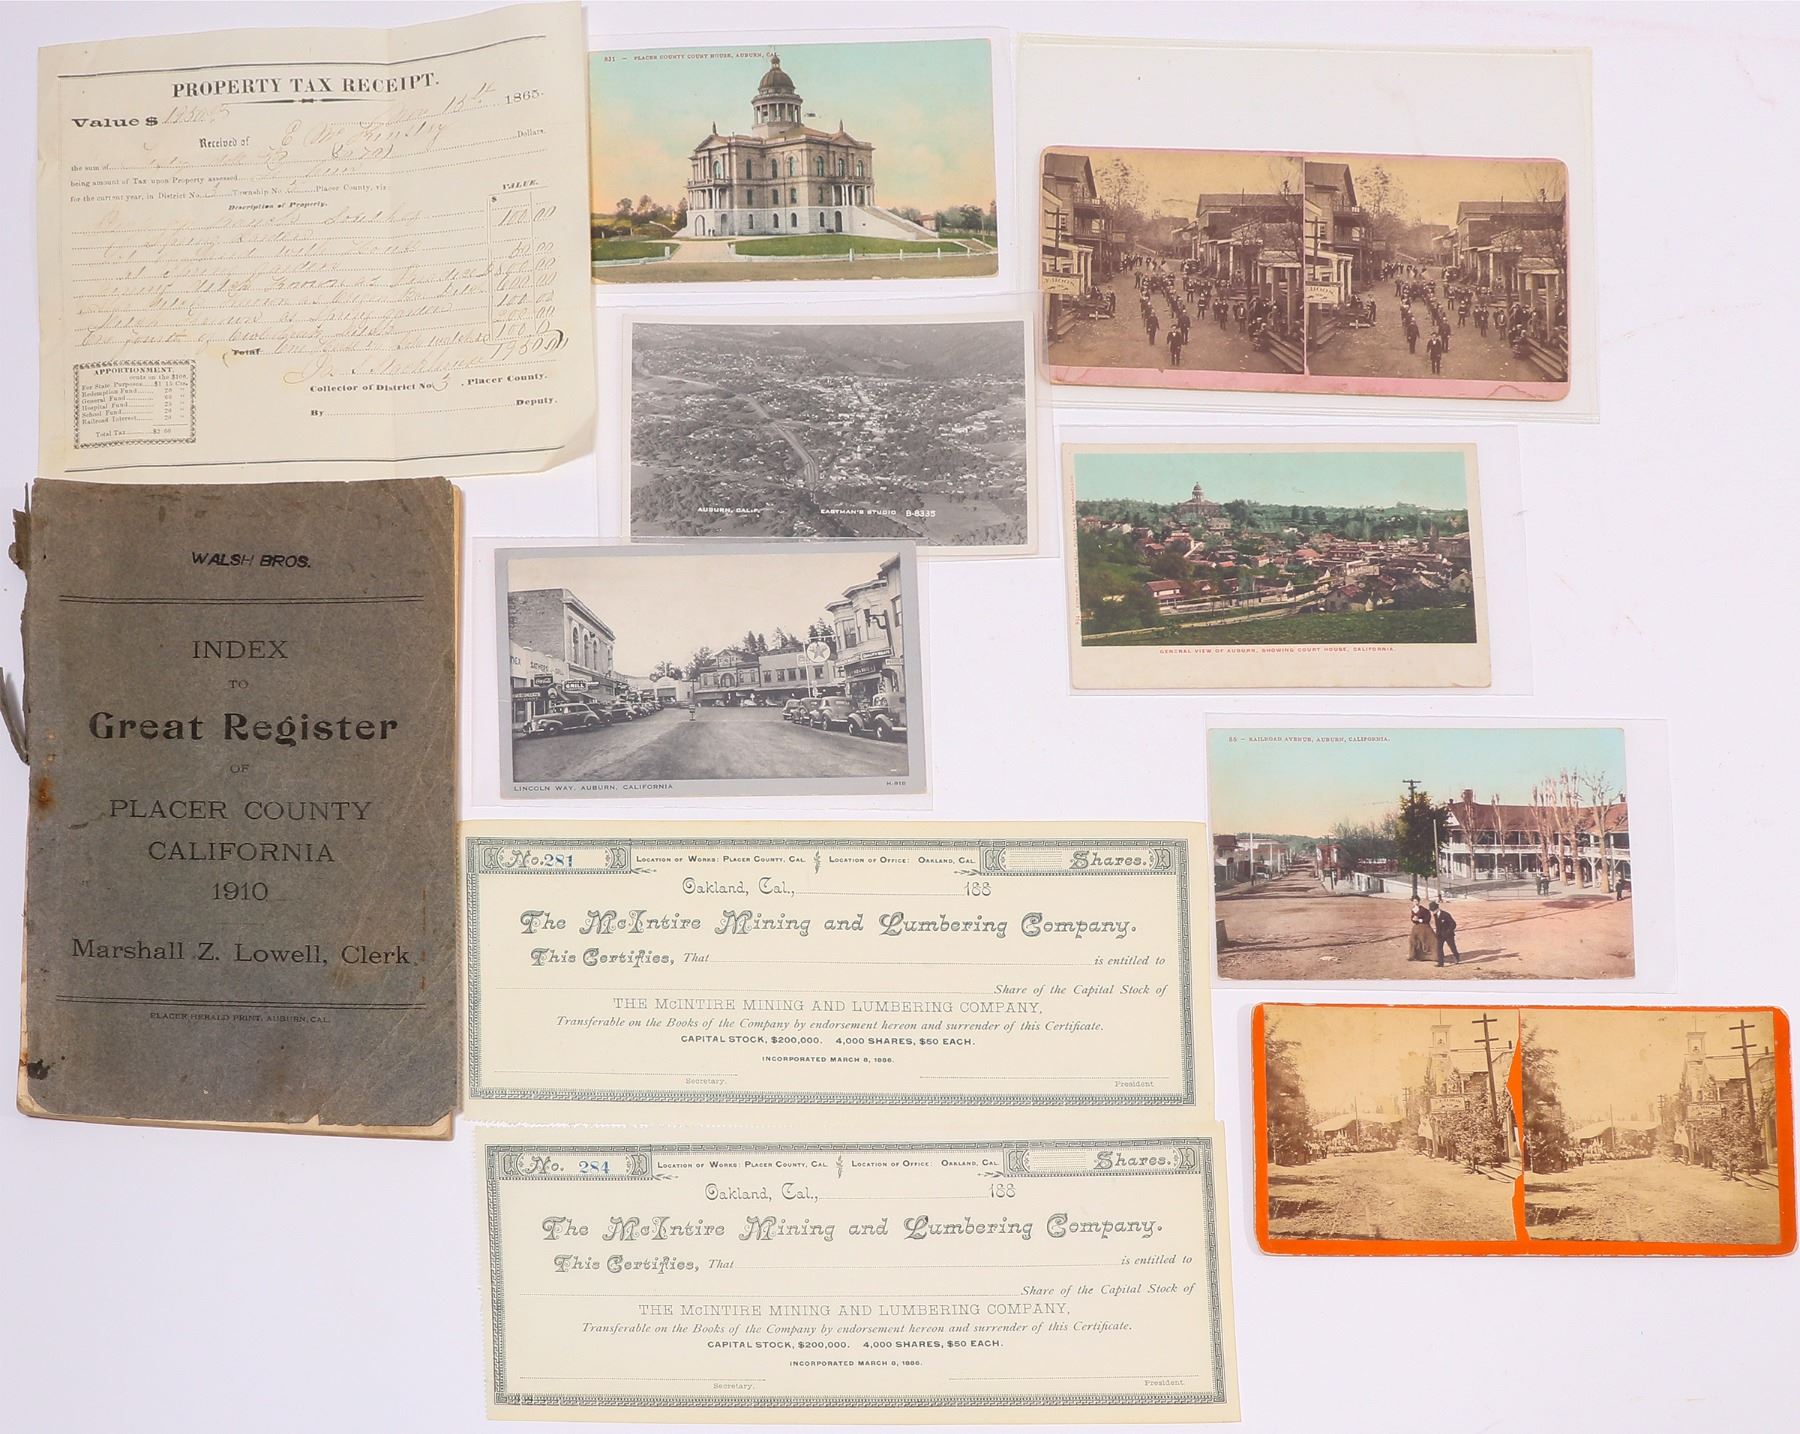 PROPERTY TAX RECEIPT.
Value $ 1865.
Received of
the sum of Dollars,
being amount of Tax upon Property assessed
for the current year, in District No. 3 Township No. Placer County, viz:
Description of Property. VALUE.
$
100 00
100 00
Total
Collector of District No. 3, Placer County.
By Deputy.
APPORTIONMENT.
cents on the $100.
For State Purposes $1 15 Cts.
Redemption Fund 20 "
General Fund 60 "
Hospital Fund 25 "
School Fund 20 "
Railroad Interest 20 "
Total Tax $2 60
831 — PLACER COUNTY COURT HOUSE, AUBURN, CAL.
AUBURN, CALIF. EASTMAN'S STUDIO B-8335
GENERAL VIEW OF AUBURN, SHOWING COURT HOUSE, CALIFORNIA.
GRILL
LINCOLN WAY, AUBURN, CALIFORNIA H-918
RAILROAD AVENUE, AUBURN, CALIFORNIA.
WALSH BROS.
INDEX
TO
Great Register
OF
PLACER COUNTY
CALIFORNIA
1910
Marshall Z. Lowell, Clerk.
PLACER HERALD PRINT, AUBURN, CAL.
No. 281 Location of Works: Placer County, Cal. Location of Office: Oakland, Cal. Shares.
Oakland, Cal., 188
The McIntire Mining and Lumbering Company.
This Certifies, That is entitled to
Share of the Capital Stock of
THE McINTIRE MINING AND LUMBERING COMPANY,
Transferable on the Books of the Company by endorsement hereon and surrender of this Certificate.
CAPITAL STOCK, $200,000. 4,000 SHARES, $50 EACH.
INCORPORATED MARCH 8, 1886.
Secretary. President
No. 284 Location of Works: Placer County, Cal. Location of Office: Oakland, Cal. Shares.
Oakland, Cal., 188
The McIntire Mining and Lumbering Company.
This Certifies, That is entitled to
Share of the Capital Stock of
THE McINTIRE MINING AND LUMBERING COMPANY,
Transferable on the Books of the Company by endorsement hereon and surrender of this Certificate.
CAPITAL STOCK, $200,000. 4,000 SHARES, $50 EACH.
INCORPORATED MARCH 8, 1886.
Secretary. President.